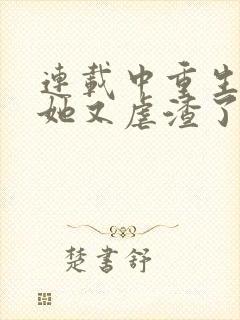 連載中重生
她又虐渣了
楚書舒